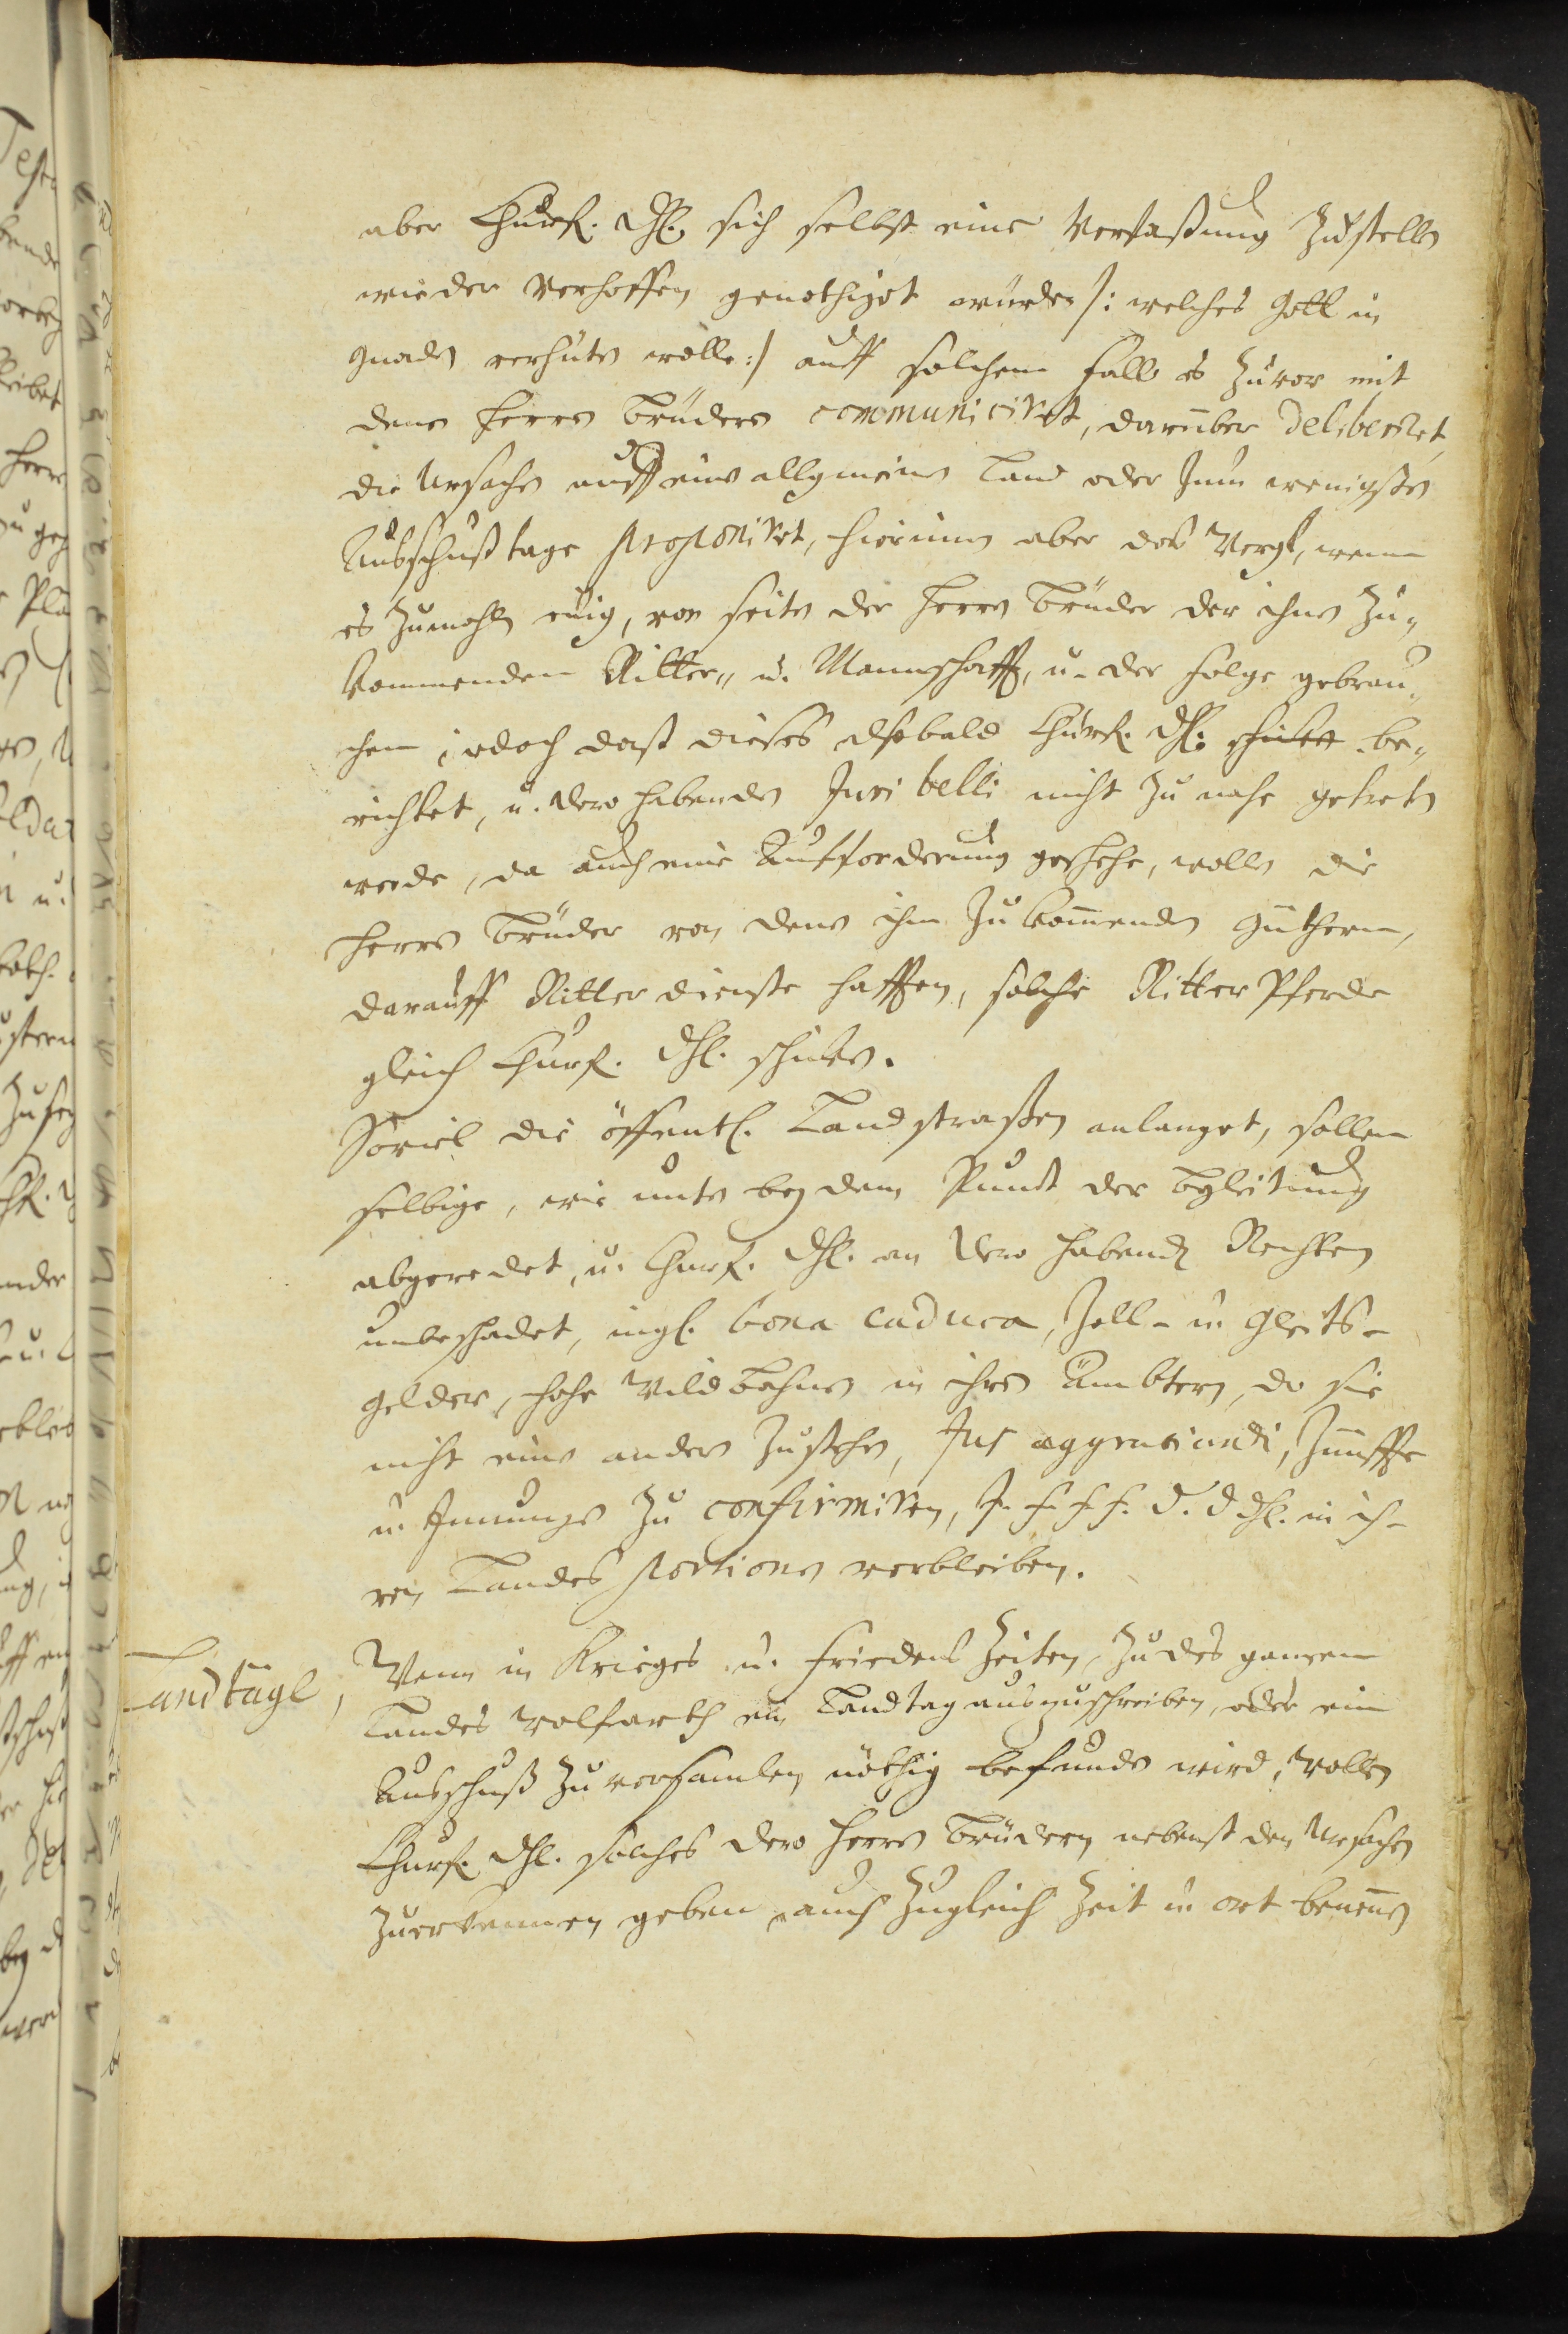 aber Churf. Dhl. sich selbst eine Verfaßung zustellen
wieder verhoffen genothiget würden /: welches Gott in
Gnaden verhüten wolle :/ auff solchem fall es zuvor mit
denen Herren Brüdern communiciret, darüber deliberiret,
die Ursachen auff einen allgemeinen Land oder zum wenigsten
Ausschußtage proponiret, hierinnen aber das Werck, wenn
es zumahln eilig, von seiten der Herren Brüder der ihnen zu-
kommenden Ritter- u. Mannschafft, u. der folge gebrau-
chen, jedoch daß dieses alsobald Churf. Dhl. be-
richtet, u. dero habenden Juri belli nicht zu nahe getreten
werde, da auch eine Aufforderung geschehe, wollen die
Herren Brüder von denen ihnen zukommenden Güthern,
darauff Ritterdienste hafften, solche Ritter Pferde
gleich Churf. Dhl. schicken.
Soviel die öffentl. Landstraßen anlanget, sollen
selbige, wie unten bey dem Punct der Begleitung
abgeredet, u. Churf. Dhl. an dero habenden Rechten
unbeschadet, ingl. bona caduca, Zoll- u. Gleits-
gelder, hohe Wildbahnen in ihren Ämbtern, do sie
nicht einen andern zustehen, Jus aggratiandi, Zünffte
u. Innungen zu confirmiren, J. F. F. F. D. D. Dhl. in ih-
ren Landes portionen verbleiben.
Landtäge,
Wenn in Krieges u. friedens Zeiten, zu des ganzen
Landes Wolfarth ein Landtag auszuschreiben, oder ein
Ausschuß zu versamlen nöthig befunden wird, wollen
Churf. Dhl. solches dero Herren Brüdern nebenst den Ursachen
zuerkennen geben, auch zugleich Zeit u. ort benennen